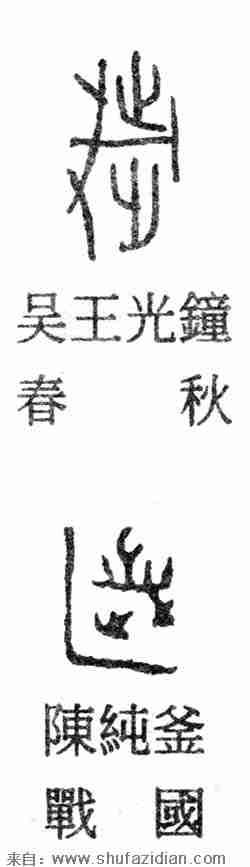 吴王光鐘
春秋
陳純釜
戰國
来自：www.shufazidian.com